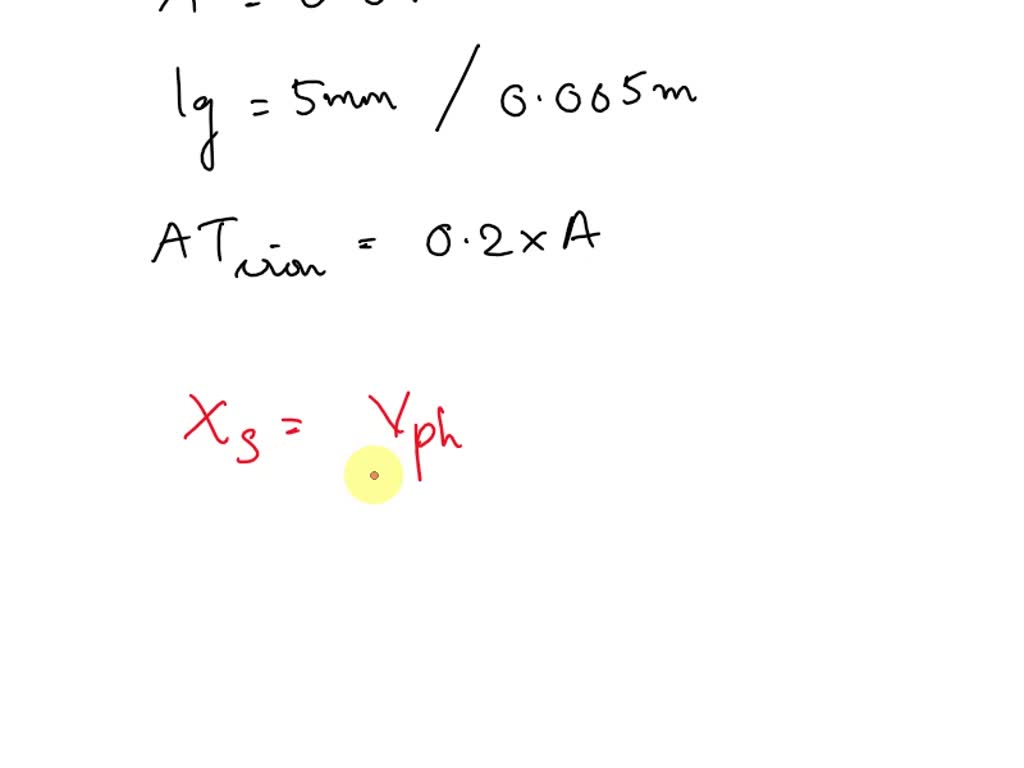 lg = 5mm / 0.005m
AT iron = 0.2 x A
Xs = Vph